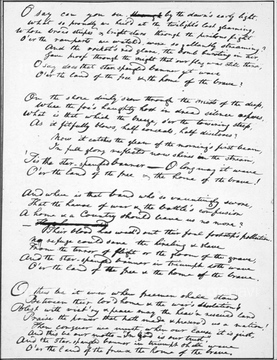 O say can you see by the dawn's early light,
What so proudly we hail'd at the twilight's last gleaming,
Whose broad stripes & bright stars through the perilous fight
O'er the ramparts we watch'd, were so gallantly streaming?
And the rocket's red glare, the bomb bursting in air,
Gave proof through the night that our flag was still there,
O say does that star-spangled banner yet wave
O'er the land of the free & the home of the brave?
On the shore dimly seen through the mists of the deep,
Where the foe's haughty host in dread silence reposes,
What is that which the breeze, o'er the towering steep,
As it fitfully blows, half conceals, half discloses?
Now it catches the gleam of the morning's first beam,
In full glory reflected now shines in the stream,
'Tis the star-spangled banner — O long may it wave
O'er the land of the free & the home of the brave!
And where is that band who so vauntingly swore,
That the havoc of war & the battle's confusion
A home & a Country should leave us no more?
Their blood has wash'd out their foul footstep's pollution.
No refuge could save the hireling & slave
From the terror of flight or the gloom of the grave,
And the star-spangled banner in triumph doth wave
O'er the land of the free & the home of the brave.
O thus be it ever when freemen shall stand
Between their lov'd home & the war's desolation!
Blest with vict'ry & peace may the heav'n rescued land
Praise the power that hath made & preserv'd us a nation!
Then conquer we must, when our cause it is just,
And this be our motto - "In God is our trust,"
And the star-spangled banner in triumph shall wave
O'er the land of the free & the home of the brave.